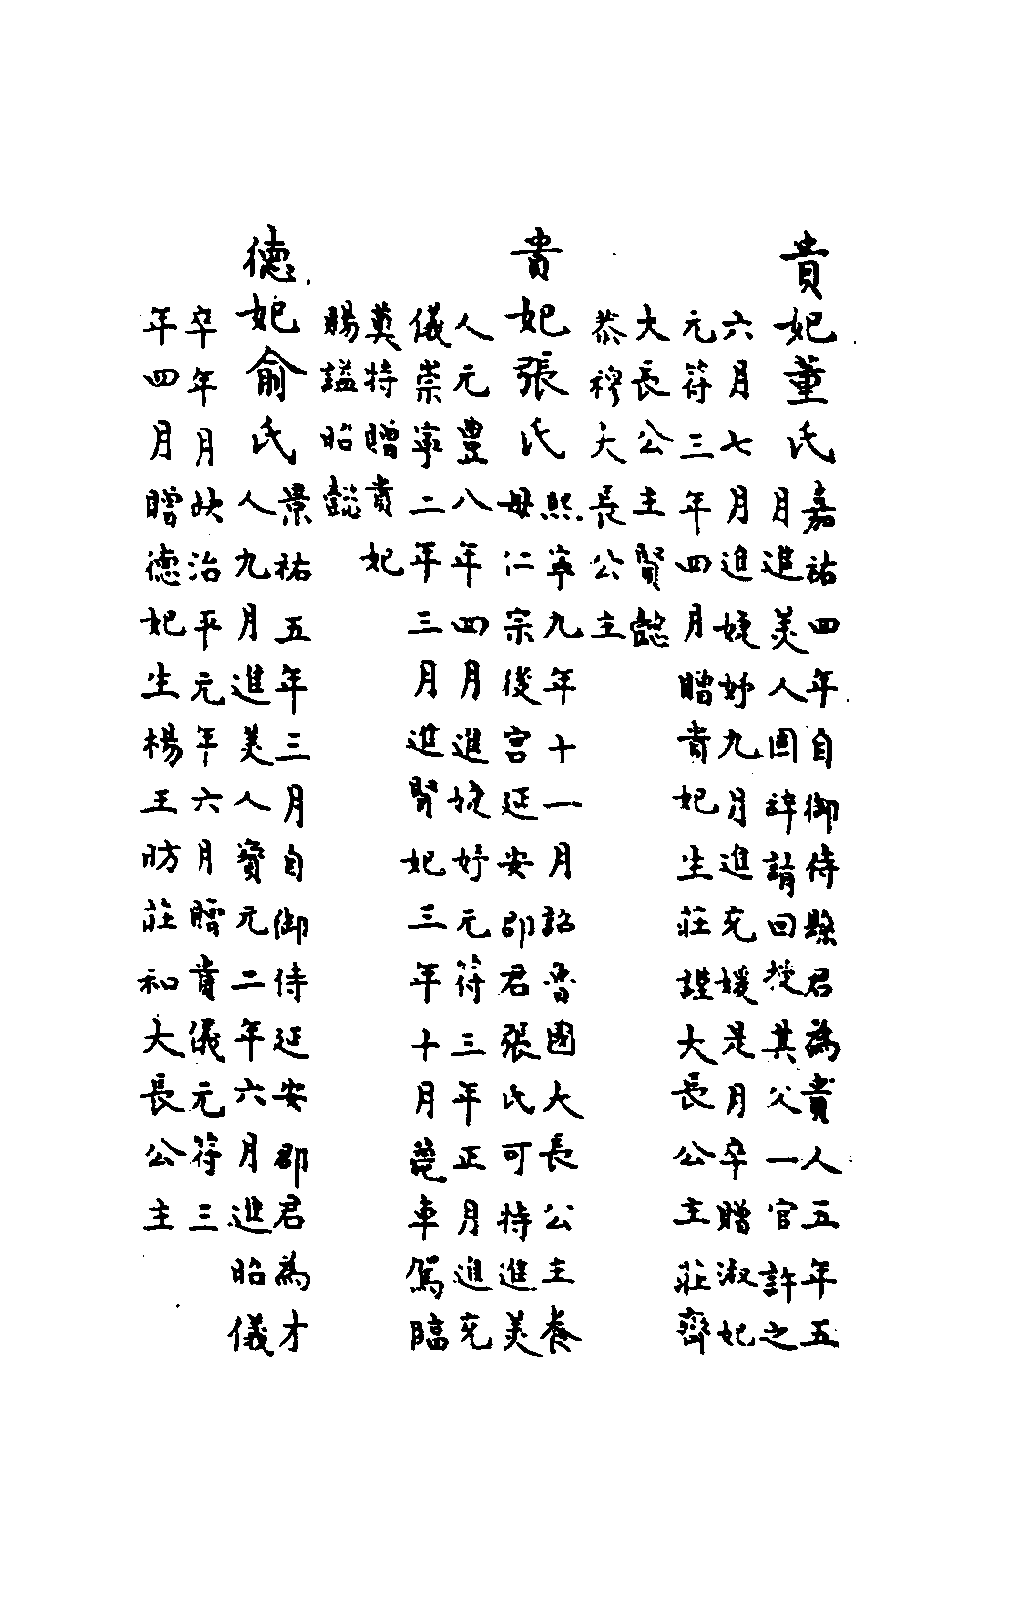 貴妃董氏嘉祐四年自御侍縣君為貴人五年五
月進美人固辭請回授其父一官許之
六月七月進婕妤九月進充媛是月卒贈淑妃
元符三年四月贈貴妃生莊謹大長公主莊齊
大長公主賢懿
恭穆大長公主
貴妃張氏熙寧九年十一月詔魯國大長公主養
母仁宗後宮延安郡君張氏可特進美
人元豐八年四月進婕妤元符三年正月進充
儀崇寧二年三月進賢妃三年十月薨車駕臨
奠特贈貴妃
賜謚昭懿
德妃俞氏景祐五年三月自御侍延安郡君為才
人九月進美人寳元二年六月進昭儀
卒年月缺治平元年六月贈貴儀元符三
年四月贈德妃生楊王昉莊和大長公主